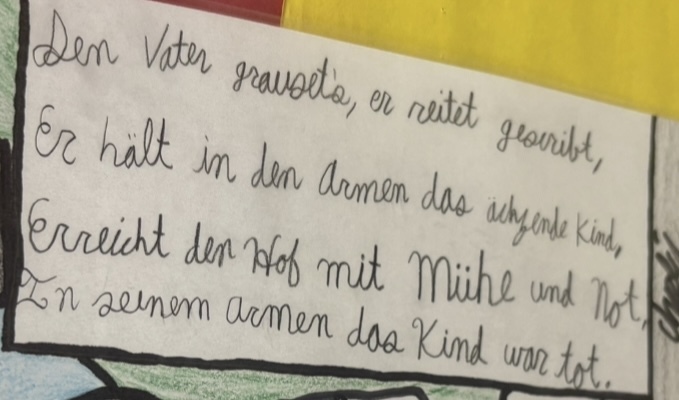 Den Vater grauset's, er reitet gescribt,
Er hält in den Armen das ächzende Kind,
Erreicht den Hof mit Mühe und Not,
In seinem armen das Kind war tot.